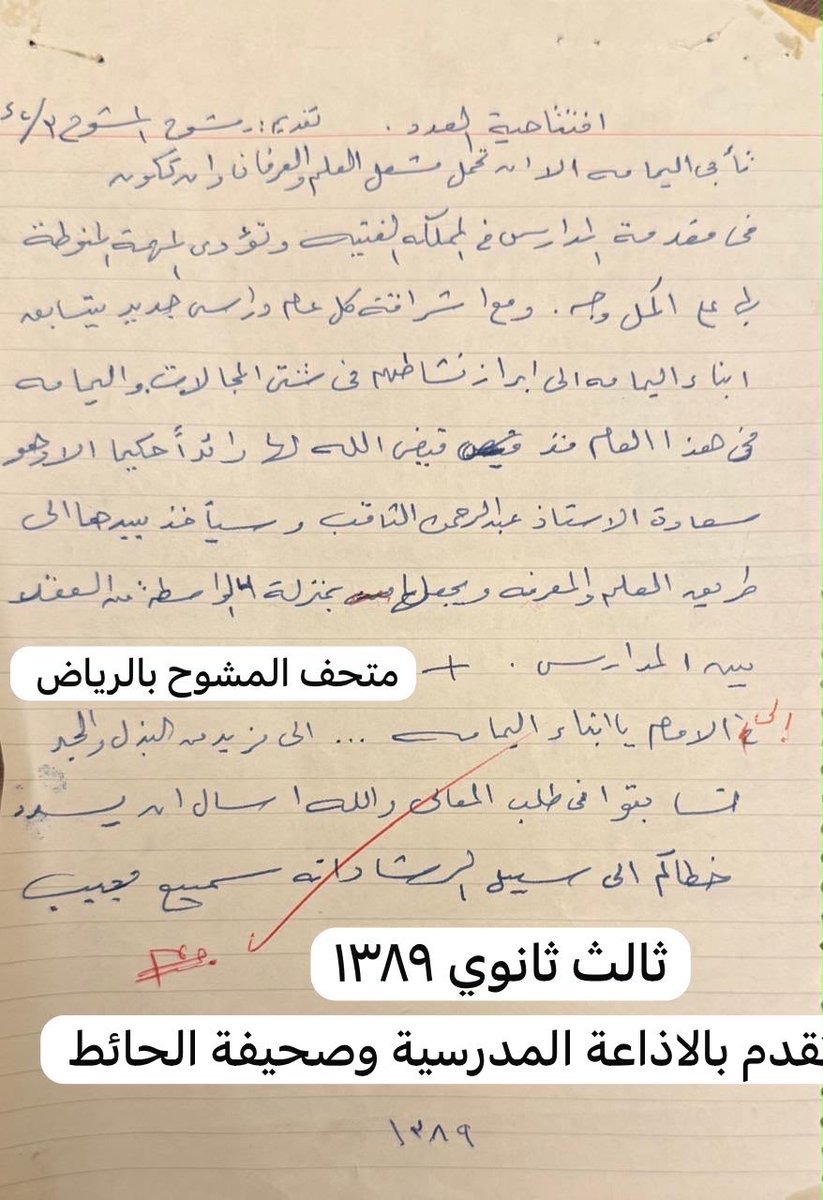 افتتاحية العدد . تقديم : مشوح المشوح ٣/
تأبى اليمامه الا ان تحمل مشعل العلم والعرفان وان تكون
فى مقدمة المدارس فى المملكه الفتيه وتؤدى المهمة المنوطة
بها على اكمل وجه . ومع اشراقة كل عام دراسى جديد يتسابق
ابناء اليمامه الى ابراز نشاطهم فى شتى المجالات واليمامه
فى هذا العام منذ قيض الله لها رائداً حكيما الا وهو
سعادة الاستاذ عبدالرحمن الثاقب وسيأخذ بيدها الى
طريق العلم والمعرفه ويجعلها بمنزلة الواسطة من العقد
بين المدارس .
متحف المشوح بالرياض
إلى الامام يا ابناء اليمامه ... الى مزيد من البذل والجد
لتسابقوا فى طلب المعالى والله اسال ان يسدد
خطاكم الى سبيل الرشاد انه سميع مجيب
ثالث ثانوي ١٣٨٩
تقدم بالاذاعة المدرسية وصحيفة الحائط
١٣٨٩